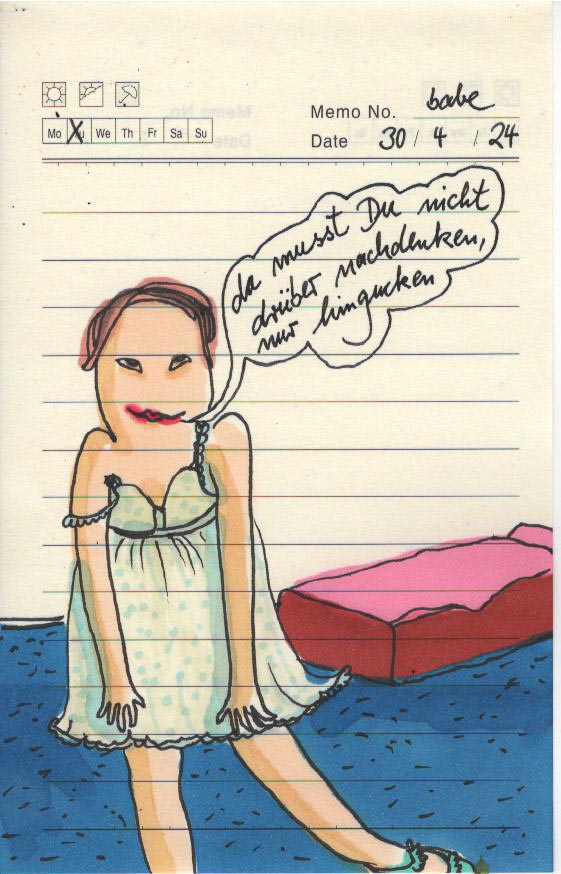 Memo No. babe
Mo Tu We Th Fr Sa Su
Date 30 / 4 / 24
da musst Du nicht
drüber nachdenken,
nur hingucken